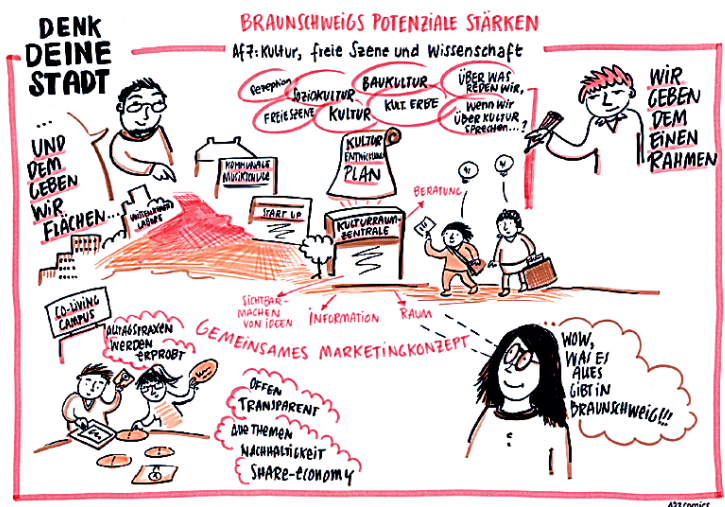 DENK
DEINE
STADT
BRAUNSCHWEIGS POTENZIALE STÄRKEN
Af7: Kultur, freie Szene und Wissenschaft
Rezeption
SOZIOKULTUR
BAUKULTUR
ÜBER WAS
REDEN WIR,
FREIE SZENE
KULTUR
KULT. ERBE
WENN WIR
ÜBER KULTUR
SPRECHEN...?
WIR
GEBEN
DEM
EINEN
RAHMEN
...
UND
DEM
GEBEN
WIR
FLÄCHEN...
KOMMUNALE
MUSIKSCHULE
KULTUR
ENTWICKLUNGS
PLAN
WISSENSCHAFTS
LABORS
START UP
KULTURRAUM-
ZENTRALE
BERATUNG
SICHTBAR-
MACHEN
VON IDEEN
INFORMATION
RAUM
GEMEINSAMES MARKETINGKONZEPT
CO-LIVING
CAMPUS
ALLTAGSPRAXEN
WERDEN
ERPROBT
OFFEN
TRANSPARENT
DIE THEMEN
NACHHALTIGKEIT
SHARE-ECONOMY
WOW,
WAS ES
ALLES
GIBT IN
BRAUNSCHWEIG!!!
123comics